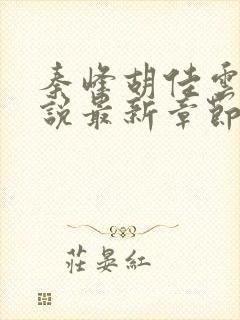 秦峰胡佳雲
說最新章節
莊晏紅